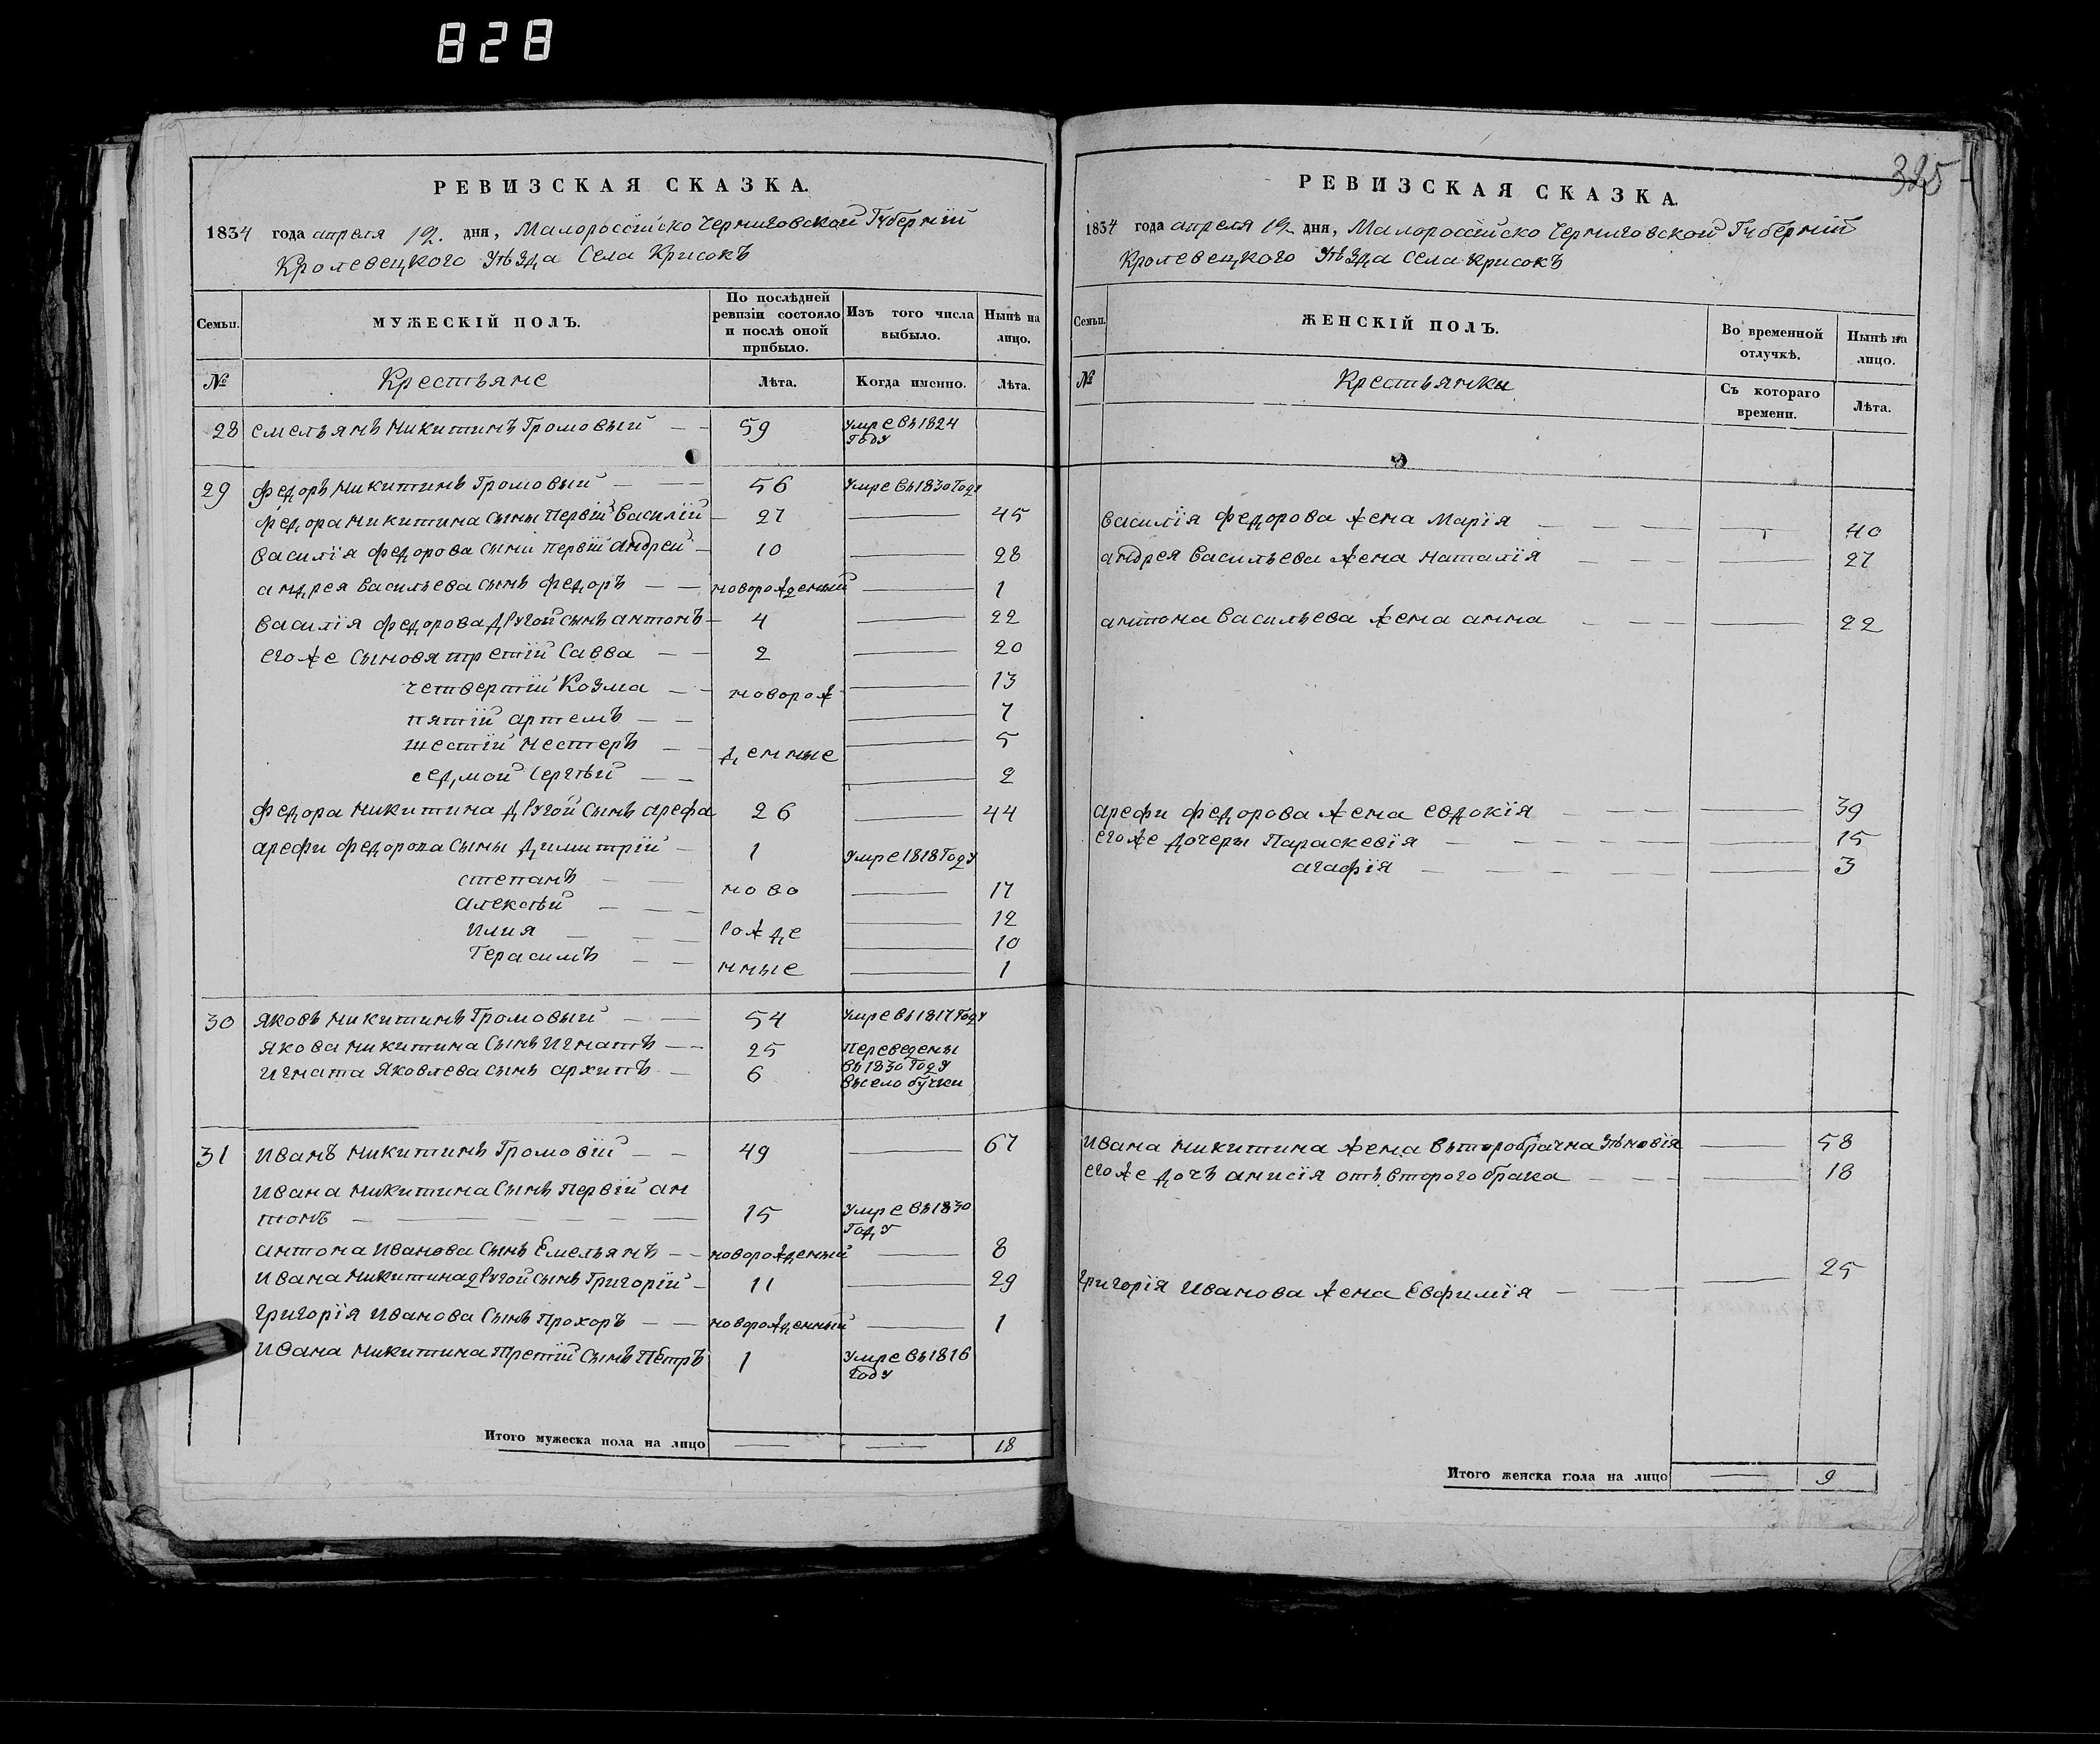 828
РЕВИЗСКАЯ СКАЗКА.
1834 года апреля 12. дня, Малороссійско Черниговской Губерніи
Кролевецкого Уѣзда Села Крисокъ
Семьи.
МУЖЕСКІЙ ПОЛЪ.
По послѣдней ревизіи состояло и послѣ оной прибыло.
Изъ того числа выбыло.
Нынѣ на лицо.
№
Крестьяне
Лѣта.
Когда именно.
Лѣта.
28 Емельянъ Никитинъ Громовый 59 Умре въ 1824 Году
29 Федоръ Никитинъ Громовый 56 Умре въ 1830 Году
Федора Никитина сыны Первій Василій 27 45
Василія Федорова сыни первій Андрей 10 28
Андрея Васильева сынъ Федоръ новорожденный 1
Василія Федорова другой сынъ Антонъ 4 22
Егоже Сыновя третій Савва 2 20
четвертій Козма новорож 13
пятій Артемъ 7
шестій Нестеръ 5
денные
седмой Сергѣй 2
Федора Никитина другой Сынъ Арефа 26 44
Арефи Федорова Сыны Димитрій 1 Умре 1818 Году
Степанъ ново 17
Алексѣй 12
Илия рожде 10
Герасимъ нные 1
30 Яковъ Никитинъ Громовый 54 Умре въ 1817 Году
Якова Никитина Сынъ Игнатъ 25 Переведены
Игната Яковлева сынъ Архипъ 6 въ 1830 Году
въ село бучки
31 Иванъ Никитинъ Громовій 49 67
Ивана Никитина Сынъ Первій Ан
тонъ 15 Умре въ 1830 Году
Антона Иванова Сынъ Емельянъ новорожденный 8
Ивана Никитина другой сынъ Григорій 11 29
Григорія Иванова Сынъ Прохоръ новорожденный 1
Ивана Никитина Третій Сынъ Петръ 1 Умре въ 1816 Году
Итого мужеска пола на лицо 18
325
РЕВИЗСКАЯ СКАЗКА.
1834 года апреля 12 дня, Малороссійско Черниговской Губерніи
Кролевецкого Уѣзда Села Крисокъ
Семьи.
ЖЕНСКІЙ ПОЛЪ.
Во временной отлучкѣ.
Нынѣ на лицо.
№
Крестьянки
Съ котораго времени.
Лѣта.
Василія Федорова жена Марія 40
Андрея Васильева жена Наталія 27
Антона Васильева жена Анна 22
Арефи Федорова жена Евдокія 39
Егоже дочеры Параскевія 15
Агафія 3
Ивана Никитина жена въторобрачна Зѣновія 58
Егоже дочъ Анисія отъ второго брака 18
Григорія Иванова жена Евфимія 25
Итого женска пола на лицо 9